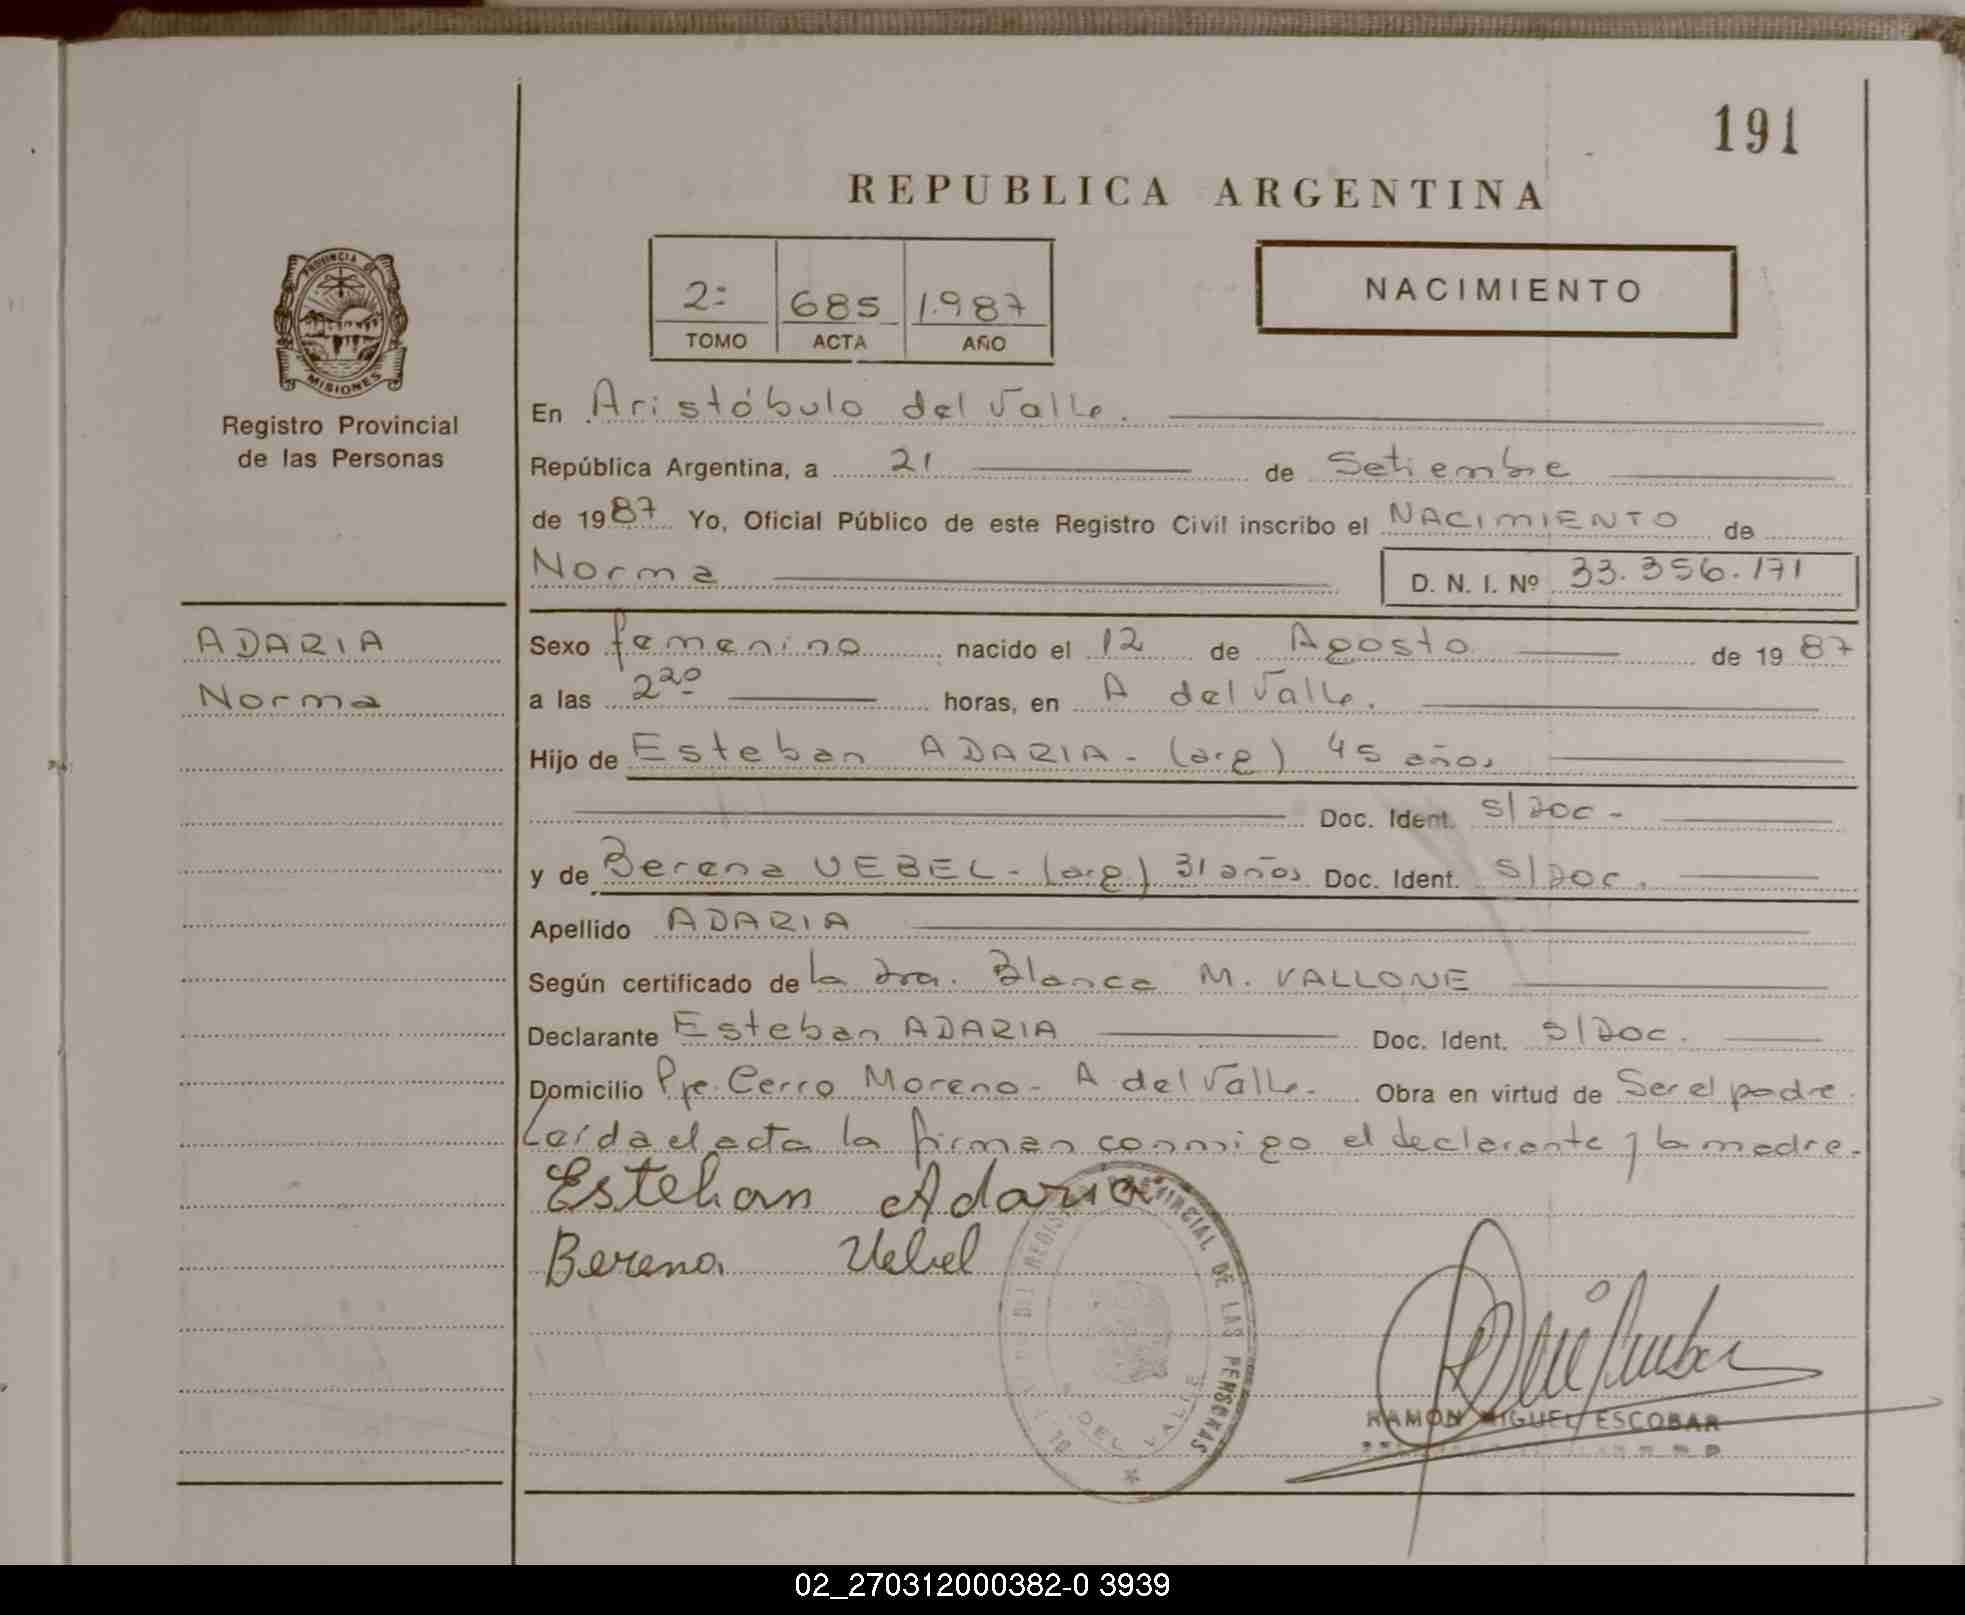 191
REPUBLICA ARGENTINA
PROVINCIA DE
MISIONES
Registro Provincial
de las Personas
2º 685 1.987
TOMO ACTA AÑO
NACIMIENTO
En Aristóbulo del Valle.
República Argentina, a 21 de Setiembre
de 1987 Yo, Oficial Público de este Registro Civil inscribo el NACIMIENTO de
Norma D. N. I. Nº 33.356.171
ADARIA
Norma
Sexo femenino nacido el 12 de Agosto de 1987
a las 2²⁰ horas, en A del Valle.
Hijo de Esteban ADARIA - (arg) 45 años
Doc. Ident. S/DOC -
y de Berena UEBEL - (arg) 31 años Doc. Ident. S/DOC.
Apellido ADARIA
Según certificado de la Dra. Blanca M. VALLONE
Declarante Esteban ADARIA Doc. Ident. S/DOC.
Domicilio Pje. Cerro Moreno - A del Valle. Obra en virtud de Ser el padre.
Leída el acta la firman conmigo el declarante y la madre.
Esteban Adaria
Berena Uebel
PROVINCIAL DE LAS PERSONAS
DEL VALLE
RAMON MIGUEL ESCOBAR
02_270312000382-0 3939